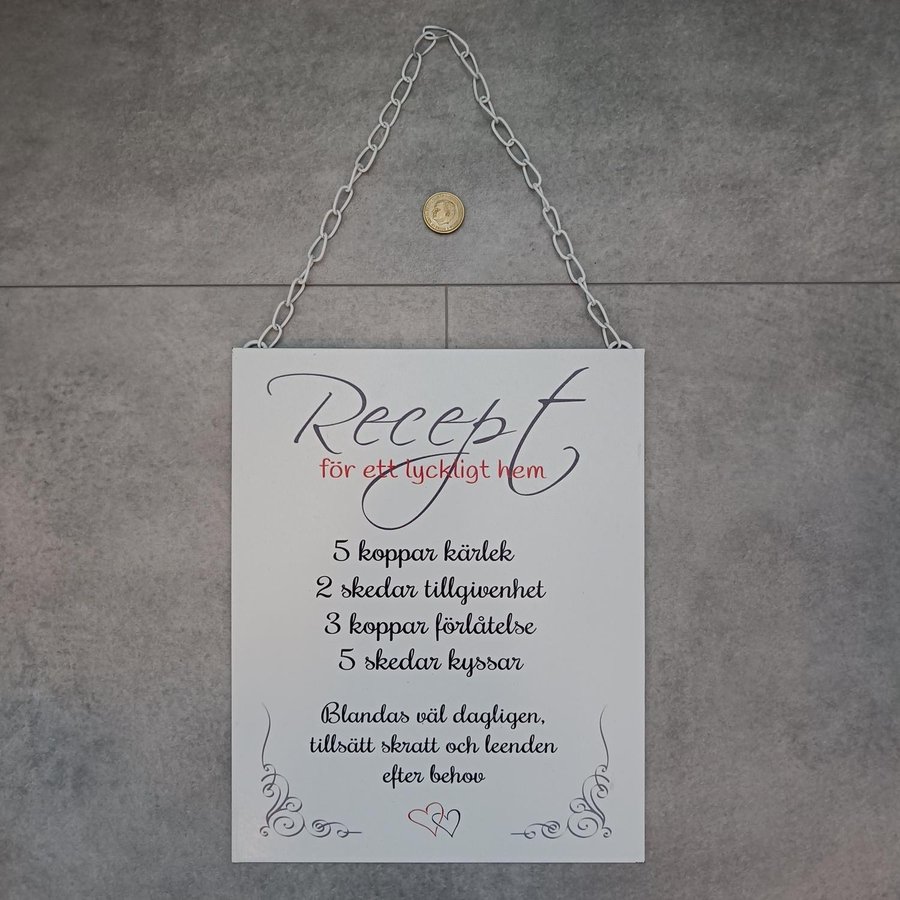 Recept
för ett lyckligt hem
5 koppar kärlek
2 skedar tillgivenhet
3 koppar förlåtelse
5 skedar kyssar
Blandas väl dagligen,
tillsätt skratt och leenden
efter behov